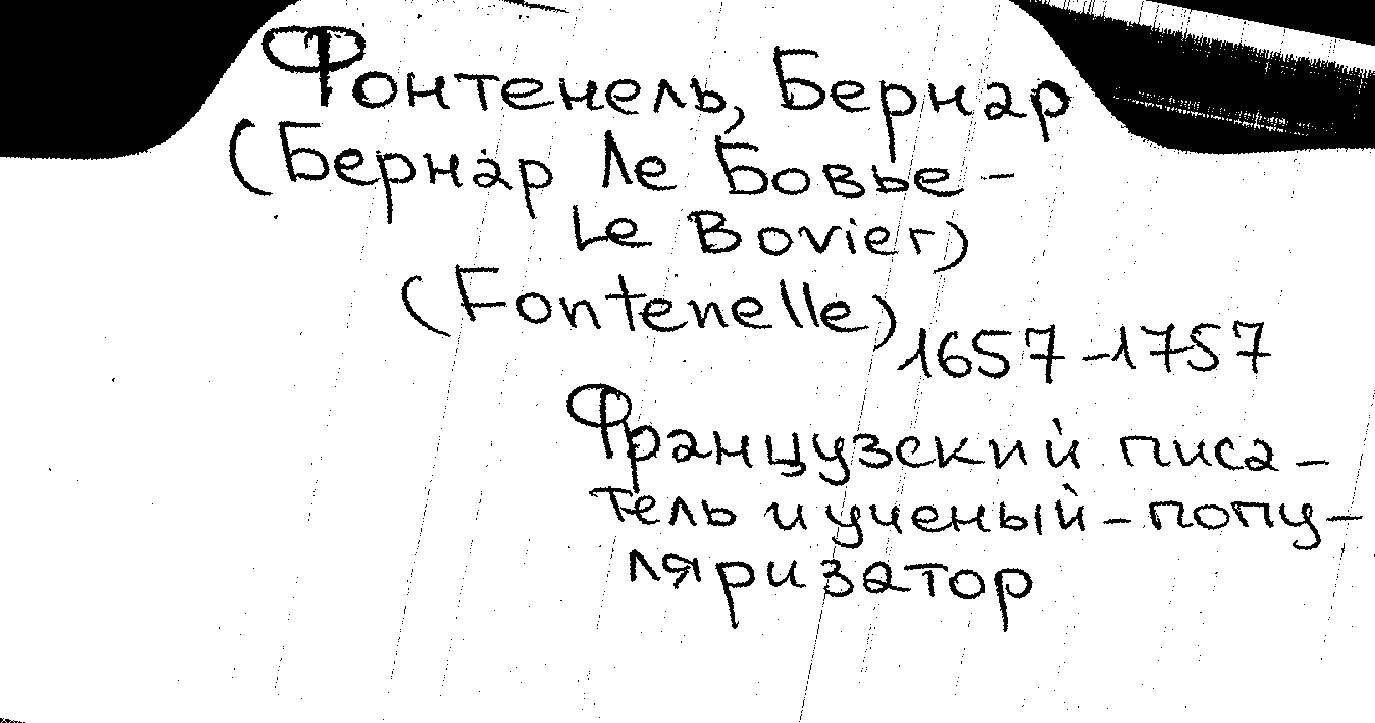 Фонтенель, Бернар
(Бернар Ле Бовье -
Le Bovier)
(Fontenelle)
1657-1757
Французский писа-
тель и ученый-попу-
ляризатор